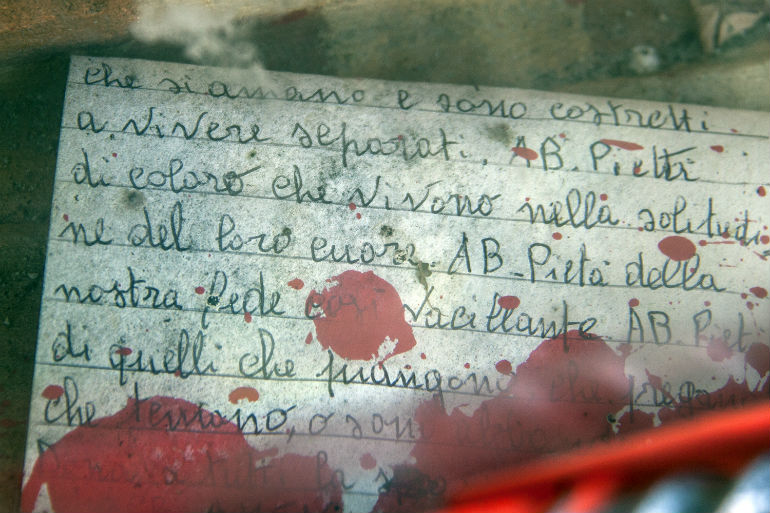 che siamano e sono costretti
a vivere separati. AB. Pietà
di coloro che vivono nella solitudi
ne del loro cuore. AB - Pietà della
nostra fede così vacillante. AB. Piet
di quelli che piangono, che pregano
che temono, o son
tutti la